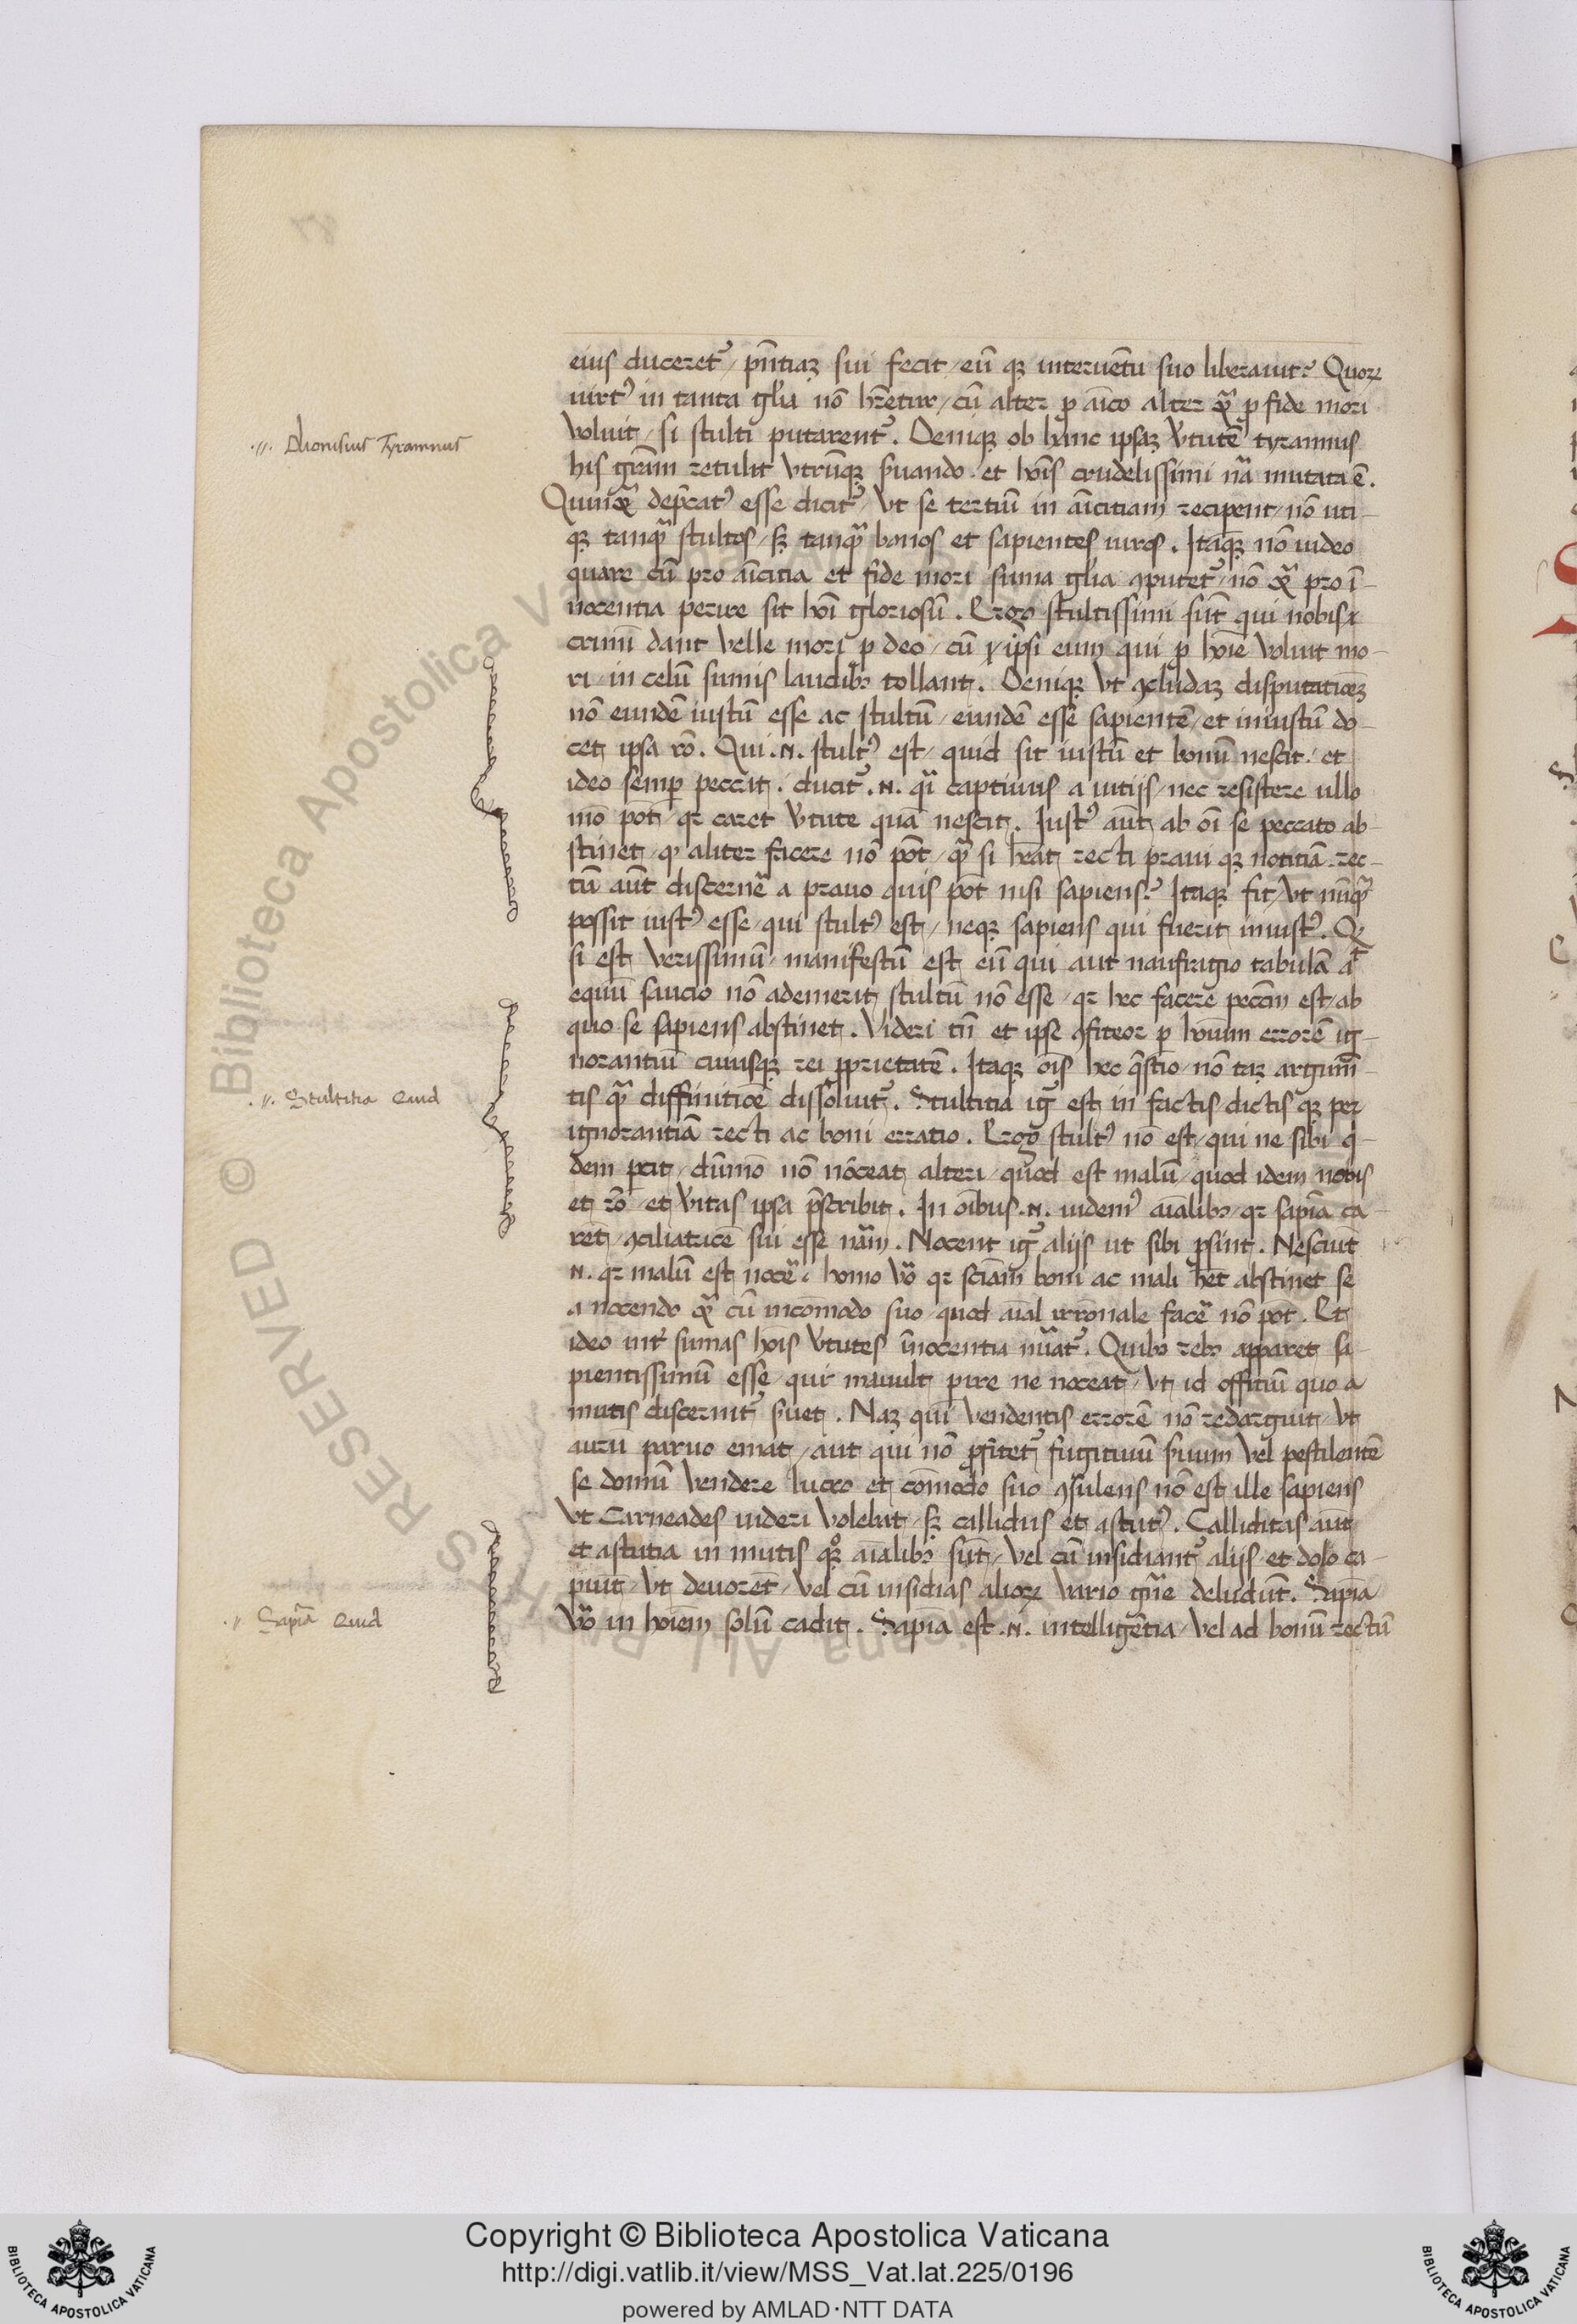 eius ducezet᷑ / pñtiaꝫ sui fecit / eũ qꝫ interuẽtu suo liberauit? Quoꝝ
uirtꝰ in tanta gl̃ia nõ hr̃etur / cũ alter ꝓ aĩco alter qͣ ꝓ fide mori
Voluit / si stulti putarent᷑. Deniqꝫ ob hanc ipsaꝫ v̾tutẽ tyrannus
.//. Dionisius Tyrannus
his gr̃am retulit vtrũqꝫ s̾uando. et hoĩs crudelissimi nã mutata ẽ.
Quinqͣ dep̃catꝰ esse dicit᷑ / vt se tertiũ in aĩcitiam reciperent / nõ uti-
qꝫ tanqͣ stultos / sꝫ tanqͣ bonos et sapientes uiros. Itaqꝫ nõ uideo
quare cũ pro aĩcitia et fide mori sũma gl̃ia ꝯputet᷑ / nõ qͣ pro ĩ-
nocentia perire sit hoĩ gloriosũ. Ergo stultissimi sũt qui nobis
crimĩ dant velle mori ꝓ deo / cũ ipsi eum qui ꝓ hoĩe voluit mo-
ri / in celũ sũmis laudibꝫ tollant. Deniqꝫ vt ꝯcludaꝫ disputatiõeꝫ
nõ eundẽ iustũ esse ac stultũ / eundẽ esse sapientẽ / et iniustũ do-
cet ipsa rõ. Qui .N. stultꝰ est / quid sit iustũ et bonũ nescit / et
ideo semꝑ peccat. ducit᷑ .N. qͣi captiuus a uitijs / nec resistere ullo
mõ põt / qꝛ caret v̾tute quã nescit. Iustꝰ aũt ab oĩ se peccato ab-
stinet / qꝫ aliter facere nõ põt / qͣ si hẽat recti praui qꝫ notitiã. rec-
tũ aũt discernẽ a prauo quis põt nisi sapiens? Itaqꝫ fit / vt nũqͣ
possit iustꝰ esse / qui stultꝰ est / neqꝫ sapiens qui fuerit iniustꝰ. Qꝫ
si est verissimũ / manifestũ est eũ qui aut naufragio tabulã aͭ
equũ saucio nõ ademerit stultũ nõ esse / qꝛ hec facere pecc̃m est / ab
quo se sapiens abstinet. Videri tñ et ipse ꝯfiteor ꝑ hoĩum errorẽ ig-
norantiũ cuiusqꝫ rei ꝓprietatẽ. Itaqꝫ oĩs hec q̃stio / nõ taꝫ argumẽ
.//. Stultitia Quid
tis qͣ diffinitiõe dissoluit᷑. Stultitia ig᷑ est in factis / dictis qꝫ per
ignorantiã recti ac boni erratio. Ergo stultꝰ nõ est / qui ne sibi q̍-
dem pcit / dũmõ nõ noceat alteri / quod est malũ / quod idem nobis
et rõ / et v̾itas ipsa p̃scribit. In oĩbus .N. uidemꝰ aĩalibꝫ / qꝛ sapĩa ca-
rẽt / ꝯciliatricẽ sui esse nãm. Nocent ig᷑ alijs ut sibi ꝓsint. Nesciũt
.N. qꝛ malũ est nocẽ. homo v̾o qꝛ sciãm boni ac mali hẽt abstinet se
a nocendo qͣ cũ incõmodo suo / quod aĩal irrõnale facẽ nõ põt. Et
ideo int̾ sũmas hoĩs v̾tutes ĩnocentia nũat᷑. Quibꝫ rebꝫ apparet sa-
pientissimũ esse / qui mauult ꝑire ne noceat / vt id offitiũ quo a
mutis discernit᷑ s̾uet. Naꝫ qui vendentis errorẽ nõ redarguit / vt
auru paruo emat / aut qui nõ ꝓfitet᷑ fugitiuũ s̾uum vel pestilentẽ
se domũ vendere lucro et cõmodo suo ꝯsulens nõ est ille sapiens
vt Carneades uideri volebat / sꝫ callidus et astutꝰ. Calliditas aũt
et astutia in mutis qꝫ aĩalibꝫ sũt / vel cũ insidiant᷑ alijs / et dolo ca-
piũt / vt deuorẽt / vel cũ insidias alioꝝ vario gñe deludũt. Sapĩa
.// Sapĩa Quid
v̾o in hoĩem solũ cadit. Sapĩa est .N. intelligẽtia / vel ad bonũ rectũ
Copyright © Biblioteca Apostolica Vaticana
http://digi.vatlib.it/view/MSS_Vat.lat.225/0196
powered by AMLAD·NTT DATA
BIBLIOTECA APOSTOLICA VATICANA
BIBLIOTECA APOSTOLICA VATICANA